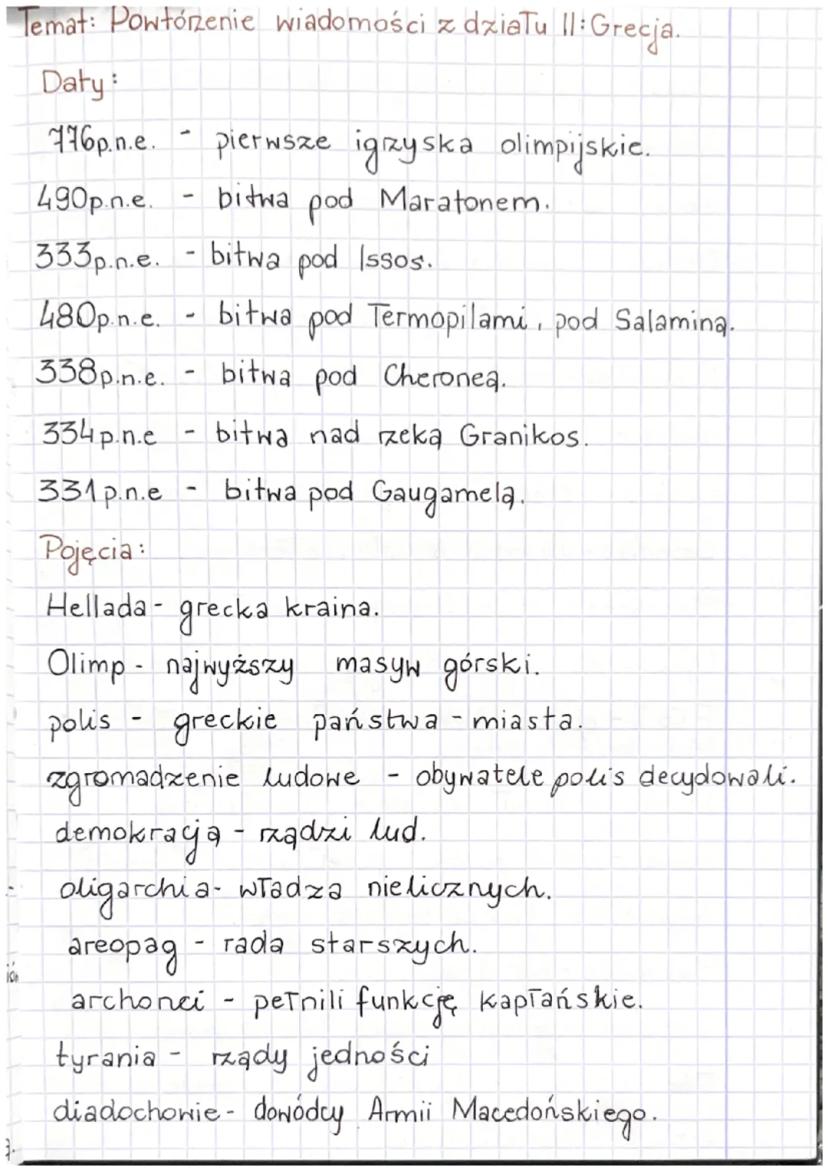 Temat: Powtórzenie wiadomości z działu II: Grecja.
Daty:
776p.n.e. - pierwsze igrzyska olimpijskie.
490p.n.e. - bitwa pod Maratonem.
333p.n.e. - bitwa pod Issos.
480p.n.e. - bitwa pod Termopilami, pod Salaminą.
338p.n.e. - bitwa pod Cheroneą.
334p.n.e - bitwa nad rzeką Granikos.
331p.n.e - bitwa pod Gaugamelą.
Pojęcia:
Hellada - grecka kraina.
Olimp - najwyższy masyw górski.
polis - greckie państwa - miasta.
zgromadzenie ludowe - obywatele polis decydowali.
demokracja - rządzi lud.
oligarchia - władza nielicznych.
areopag - rada starszych.
archonci - pełnili funkcję kapłańskie.
tyrania - rządy jedności
diadochowie - dowódcy Armii Macedońskiego.